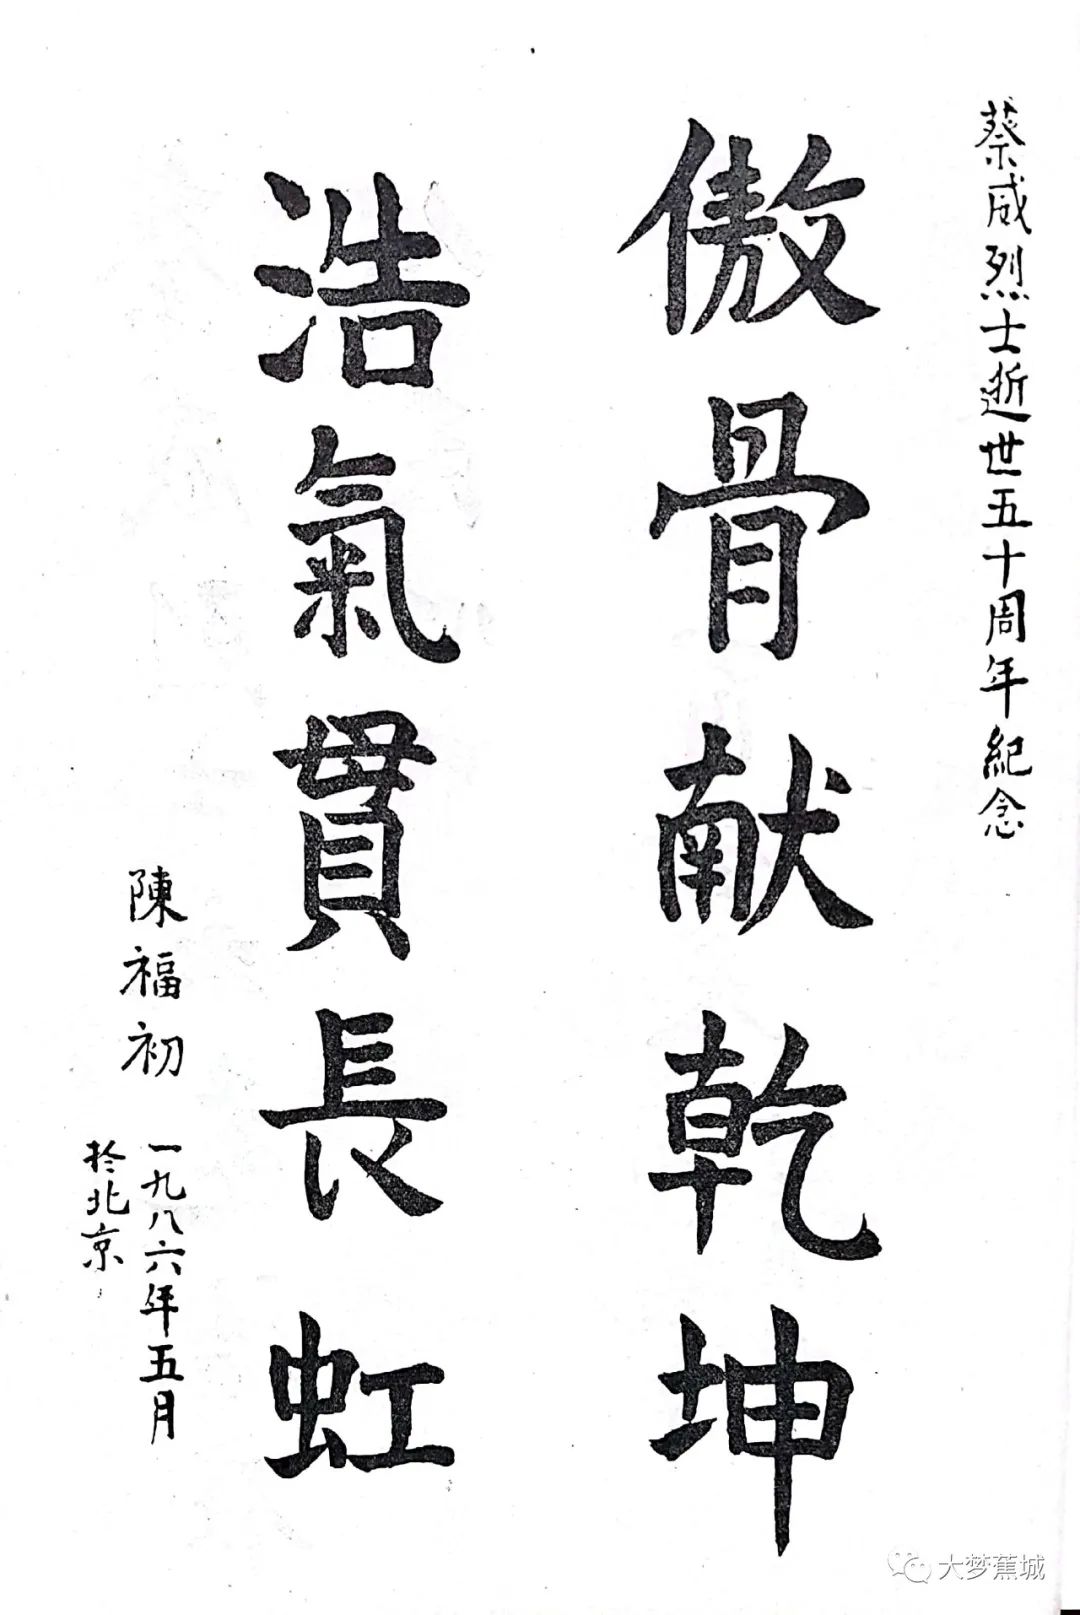 蔡威烈士逝世五十周年紀念
傲骨献乾坤
浩氣貫長虹
陳福初
一九八六年五月
於北京
大梦蕉城